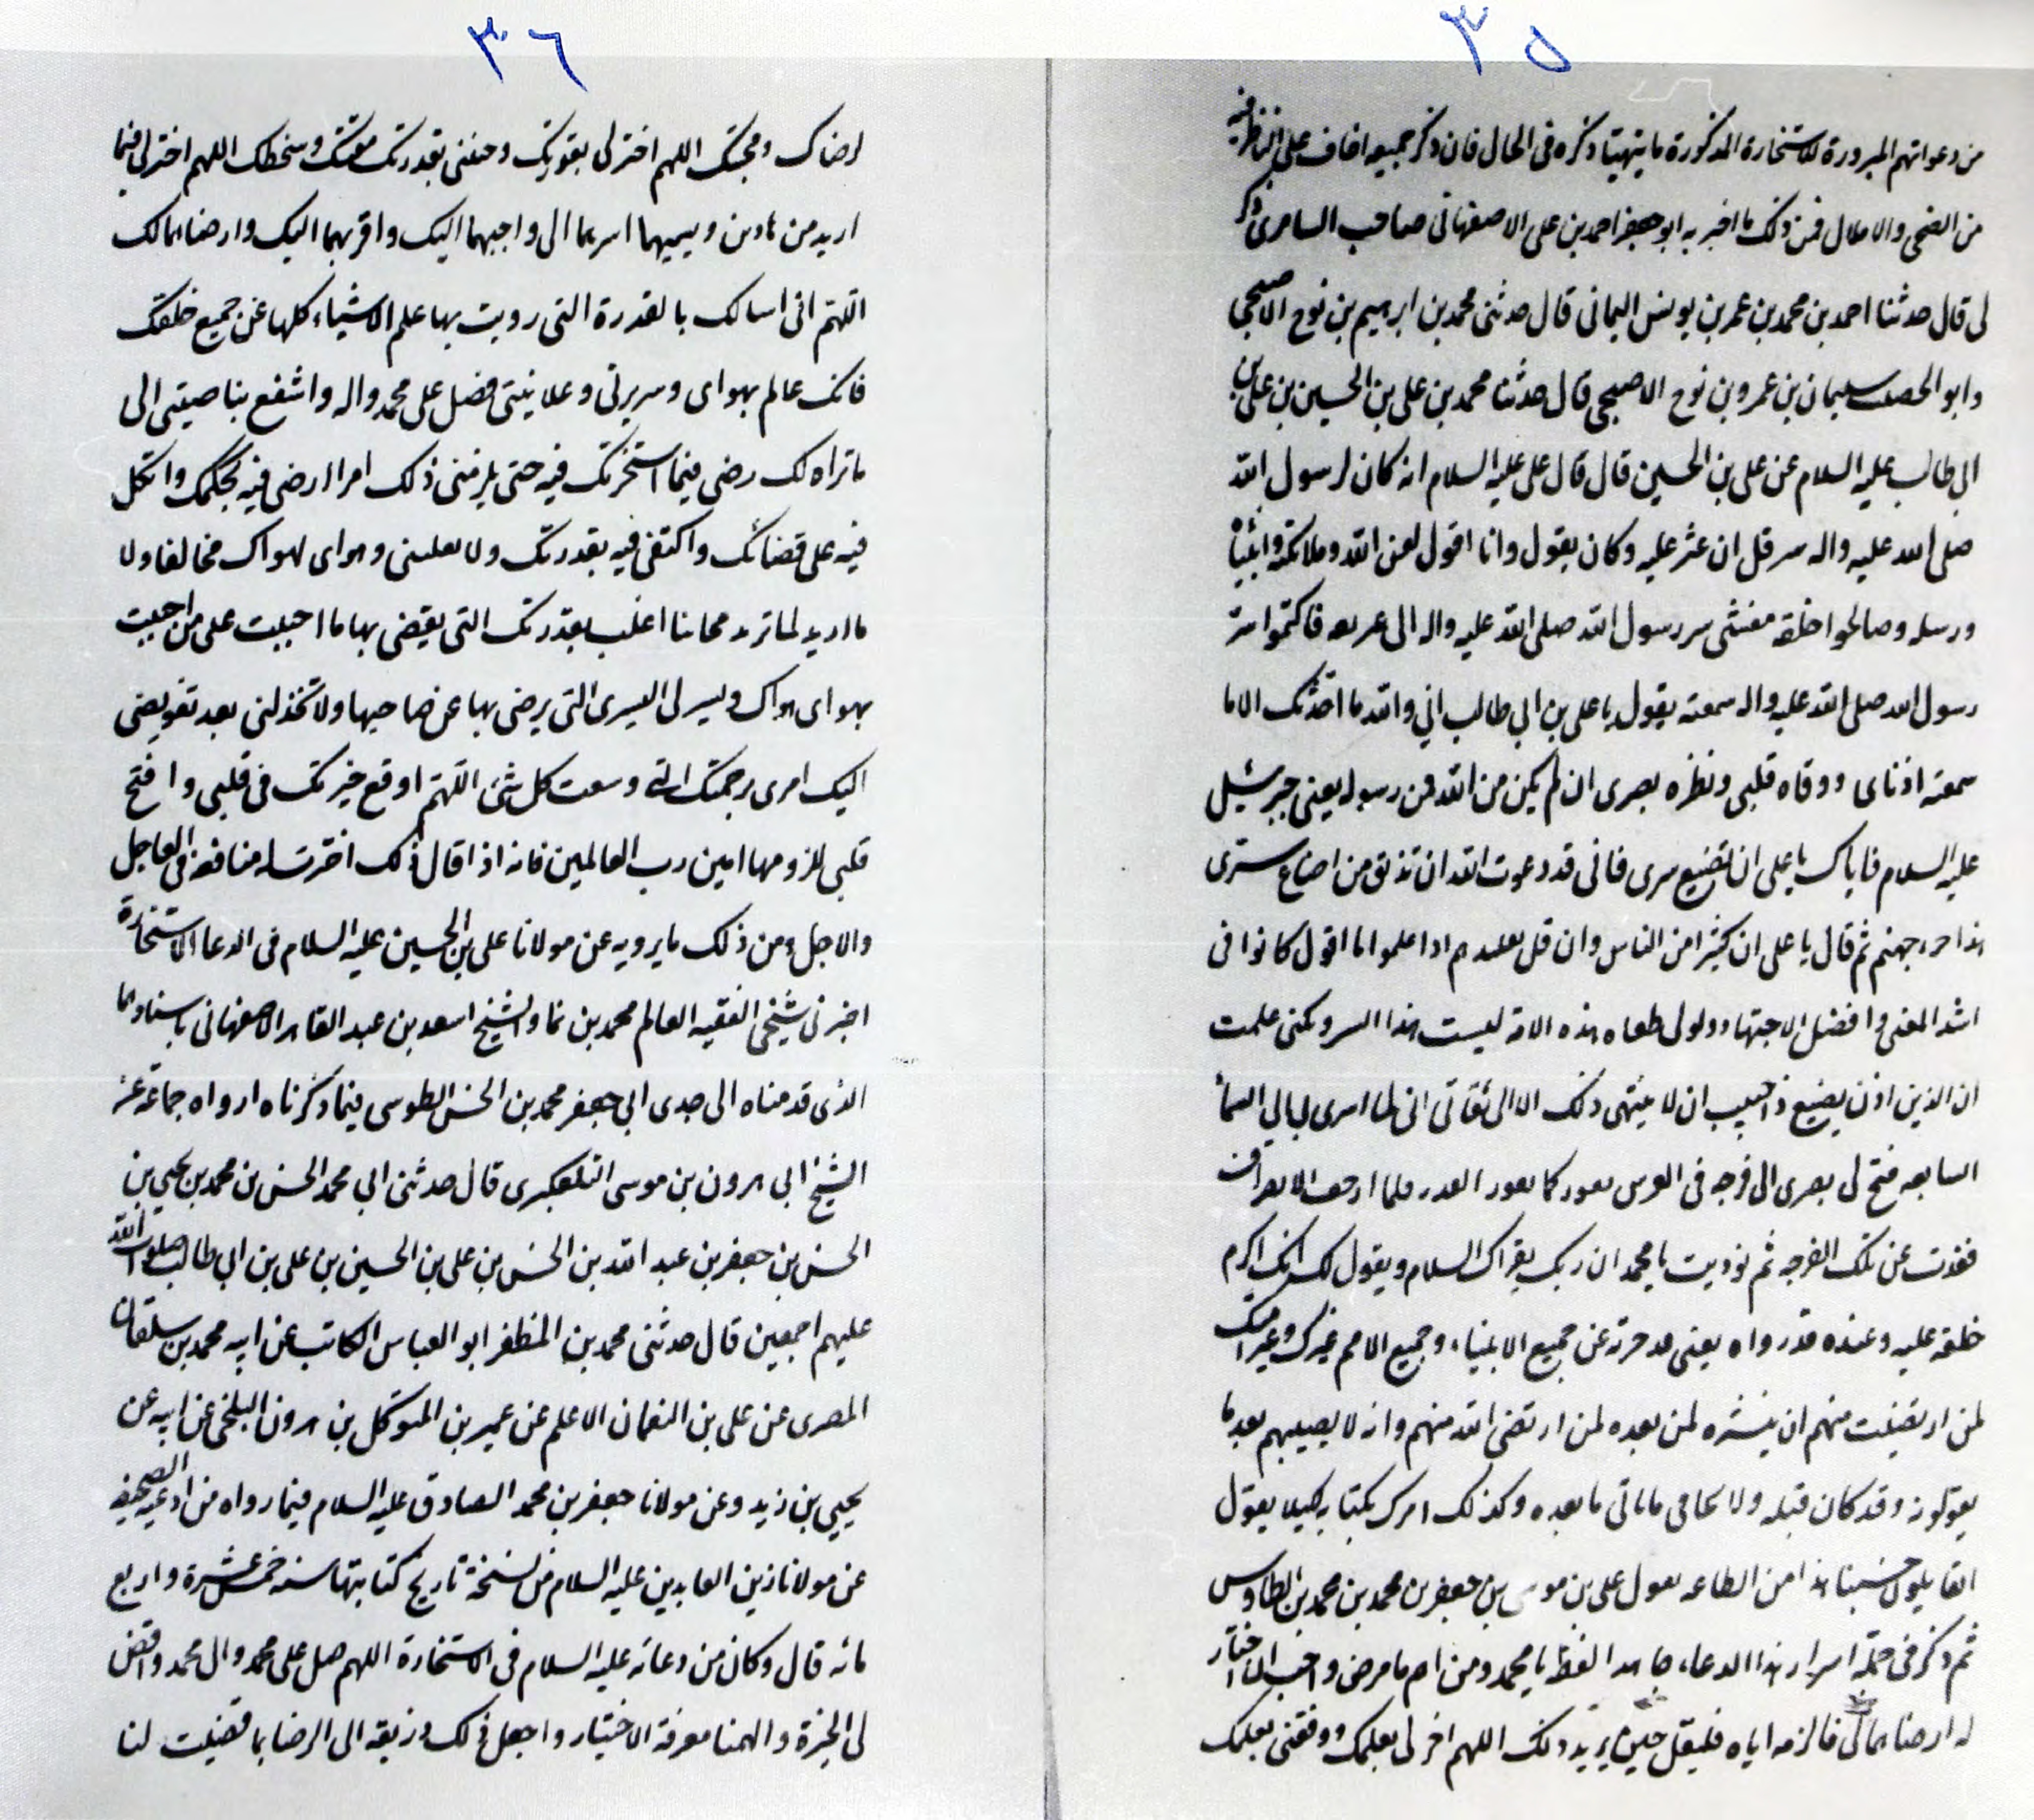 ٣٥
من دعواتهم المبرورة للاستخارة المذكورة ما يتهيتا ذكره فى الحال فان ذكر جميعه اخاف على الناظر فيه
من الضجر والاملال فمن ذلك ما اخبر به ابو جعفر احمد بن على الاصفهانى صاحب السامرى ذكر
لى قال حدثنا احمد بن محمد بن عمر بن يونس اليمانى قال حدثنى محمد بن ابرهيم بن نوح الاصبحى
وابو الخصيب سليمان بن عمرو بن نوح الاصبحى قال حدثنا محمد بن على بن الحسين بن على بن
ابى طالب عليه السلام عن على بن الحسين قال قال على عليه السلام انه كان لرسول الله
صلى الله عليه واله سر قل ان عثر عليه وكان يقول وانا اقول لعن الله وملائكته وانبيائه
ورسله وصالحوا خلقه مفشى سر رسول الله صلى الله عليه واله الى فاكتموا سر
رسول الله صلى الله عليه واله سمعته يقول يا على بن ابى طالب انى والله ما احدثك الا ما
سمعته اذناى ووعاه قلبى ونظره بصرى ان لم يكن من الله فمن رسوله يعنى جبرئيل
عليه السلام فاياك يا على ان تضيع سرى فانى قد دعوت الله ان تذيق من اضاع سرى
هذا جهنم ثم قال يا على ان كثيرا من الناس وان قل اذا علموا ما اقول كانوا فى
اشد العنى وافضل الاجتهاد ولولا طغاه هذه الامة لبينت هذا السر ولكنى علمت
ان الذين اذن يضيع فاحببت ان لا ينتهى ذلك الا الى ثقاتى انى لما اسرى بى الى السماء
السابعه فتح لى بصرى الى فرجه فى العرش تفور كما يفور القدر فلما اردت الانصراف
فقدت عن تلك الفرجه ثم نوديت يا محمد ان ربك يقراك السلام ويقول لك انك اكرم
خلقه عليه وعنده قدرواه يعنى عن جميع الانبياء وجميع الامم غيرك وغير امتك
لمن ارتضيت منهم ان ينشره لمن بعده لمن ارتضى الله منهم وانه لا يصيبهم بعد ما
يقولونه وقد كان قبله ولا مخافى ماياتى ما بعده وكذلك امرك بكتمانه كيلا يقول
القايلون حسبنا هذا من الطاعه يقول على بن موسى بن جعفر بن محمد بن محمد بن الطاوس
ثم ذكر فى جملة اسرار هذا الدعاء ما هذا لفظه يا محمد ومن
له ارضاهما لى فالزمه اياه فليقل حين يريد ذلك اللهم اختر لى بعلمك ووفقنى بعلمك
٣٦
لرضاك ومحبتك اللهم اختر لى بقدرتك وجنبنى بقدرتك مقتك وسخطك اللهم اختر لى فيما
اريد من هذين ويسميهما اسرهما الى واحبهما اليك واقربهما اليك وارضاهما لك
اللهم انى اسالك بالقدرة التى زويت بها علم الاشياء كلها عن جميع خلقك
فانك عالم بهواى وسريرتى وعلانيتى فصل على محمد واله واشفع بناصيتى الى
ما تراه لك رضى فيما استخرتك فيه حتى يلزمنى ذلك امرا ارضى فيه بحكمك واتكل
فيه على قضائك واكتفى فيه بقدرتك ولا تقلبنى وهواى لهواك مخالفا ولا
ما اريد لما تريد مجانبا اغلب بقدرتك التى تقضى بها ما احببت على من احببت
بهواى هواك ويسرلى اليسرى التى يرضى بها عن صاحبها ولا تخذلنى بعد تفويضى
اليك امرى برحمتك التى وسعت كل شئ اللهم اوقع خيرتك فى قلبى وافتح
قلبى للزومها امين رب العالمين فانه اذا قال ذلك اخترت له منافعه فى العاجل
والاجل ومن ذلك ما يرويه عن مولانا على بن الحسين عليه السلام فى الدعا الاستخارة
اخبرنى شيخى الفقيه العالم محمد بن نما والشيخ اسعد بن عبد القاهر الاصفهانى باسنادهما
الذى قدمناه الى جدى ابى جعفر محمد بن الحسن الطوسى فيما ذكرناه ارواه جماعة عن
الشيخ ابى هرون بن موسى التلعكبرى قال حدثنى ابى محمد الحسن بن محمد بن يحيى بن
الحسن بن جعفر بن عبد الله بن الحسن بن على بن الحسين بن على بن ابى طالب صلوات الله
عليهم اجمعين قال حدثنى محمد بن المظفر ابو العباس الكاتب عن ابيه محمد بن سلقان
المصرى عن على بن النعمان الاعلم عن عمير بن المتوكل بن هرون البلخى عن ابيه عن
يحيى بن زيد وعن مولانا جعفر بن محمد الصادق عليه السلام فيما رواه من ادعية الصحيفه
عن مولانا زين العابدين عليه السلام من نسخة تاريخ كتابتها سنه خمس عشرة واربع
مائه قال وكان من دعائه عليه السلام فى الاستخارة اللهم صل على محمد وال محمد واقض
لى الخيرة والهمنا معرفة الاختيار واجعل ذلك ذريعة الى الرضا بما قضيت لنا